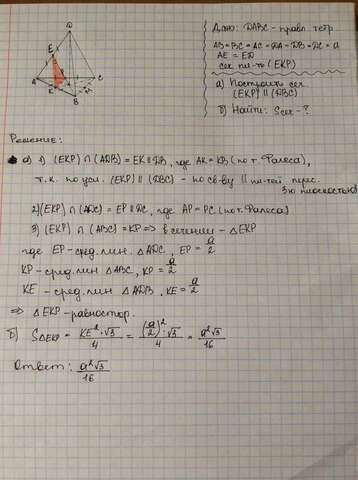 D
E
A
C
P
K
B
Дано: DABC - правл. тетр
AB = BC = AC = DA = DB = DC = a
AE = ED
сек пл-ть (EKP)
а) Построить сеч
(EKP) || (DBC)
б) Найти: Sсеч - ?
Решение:
а) 1) (EKP) ∩ (ADB) = EK || DB, где AK = KB (по т. Фалеса),
т.к. по усл. (EKP) || (DBC) - по св-ву || пл-тей перес.
3ю плоскостью
2) (EKP) ∩ (ADC) = EP || DC, где AP = PC (по т. Фалеса)
3) (EKP) ∩ (ABC) = KP => в сечении - △EKP
где EP - сред. лин. △ADC, EP = a/2
KP - сред. лин △ABC, KP = a/2
KE - сред. лин △ADB, KE = a/2
=> △EKP - равностор.
б) S△EKP = KE²·√3/4 = (a/2)²·√3/4 = a²√3/16
Ответ: a²√3/16